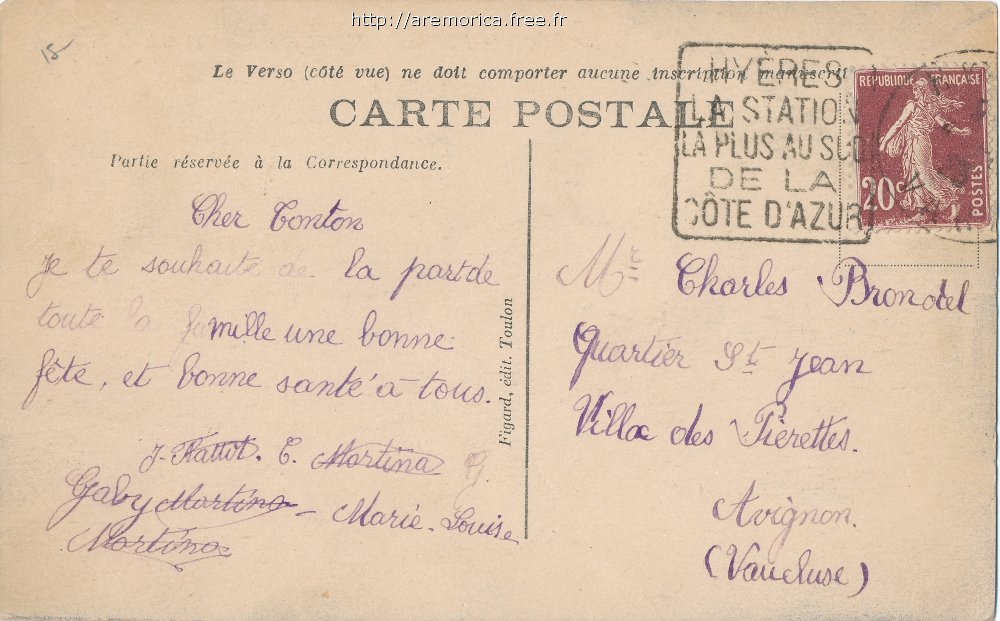 http://aremorica.free.fr
18
Le Verso (côté vue) ne doit comporter aucune inscription manuscrite
CARTE POSTALE
HYÈRES
LA STATION
LA PLUS AU SUD
DE LA
CÔTE D'AZUR
REPUBLIQUE FRANÇAISE
20c
POSTES
Partie réservée à la Correspondance.
Cher Tonton
je te souhaite de la part de
toute la famille une bonne
fête, et bonne santé à tous.
J. Rattot. C. Martina
Gaby Martina - Marie-Louise
Martina
Figard, édit. Toulon
Mr Charles Brondel
Quartier St jean
Villa des Pierettes.
Avignon.
(Vaucluse)